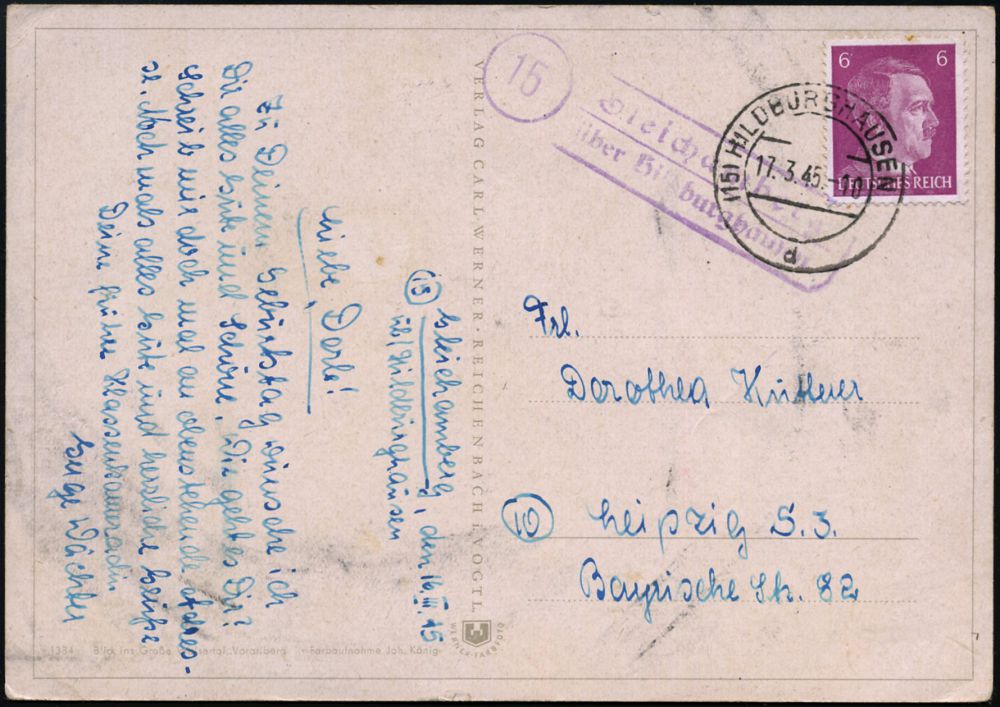 (15) Gleichamberg, den 16. III. 45
üb/ Hildburghausen
Liebe Dorle!
Zu Deinem Geburtstag wünsche ich
Dir alles Gute und Schöne. Wie geht es Dir?
Schreib mir doch mal an obenstehende Adres-
se. Nochmals alles Gute und herzliche Grüße
Deine frühere Klassenkameradin
Inge Wächter
VERLAG CARL WERNER · REICHENBACH I. VOGTL.
WERNER-FARBFOTO
1384 Bild ins Große Walsertal, Vorarlberg Farbaufnahme Joh. König
15
Gleichamberg
über Hildburghausen
(15) HILDBURGHAUSEN
17.3.45.-18
d
6 6
DEUTSCHES REICH
Frl.
Dorothea Küttner
(10) Leipzig S. 3.
Bayrische Str. 82